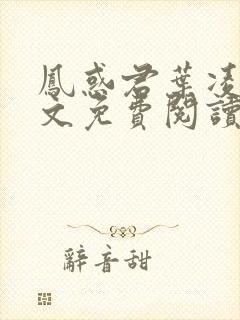 鳳惑君葉凌
文免費閱讀
辭音甜